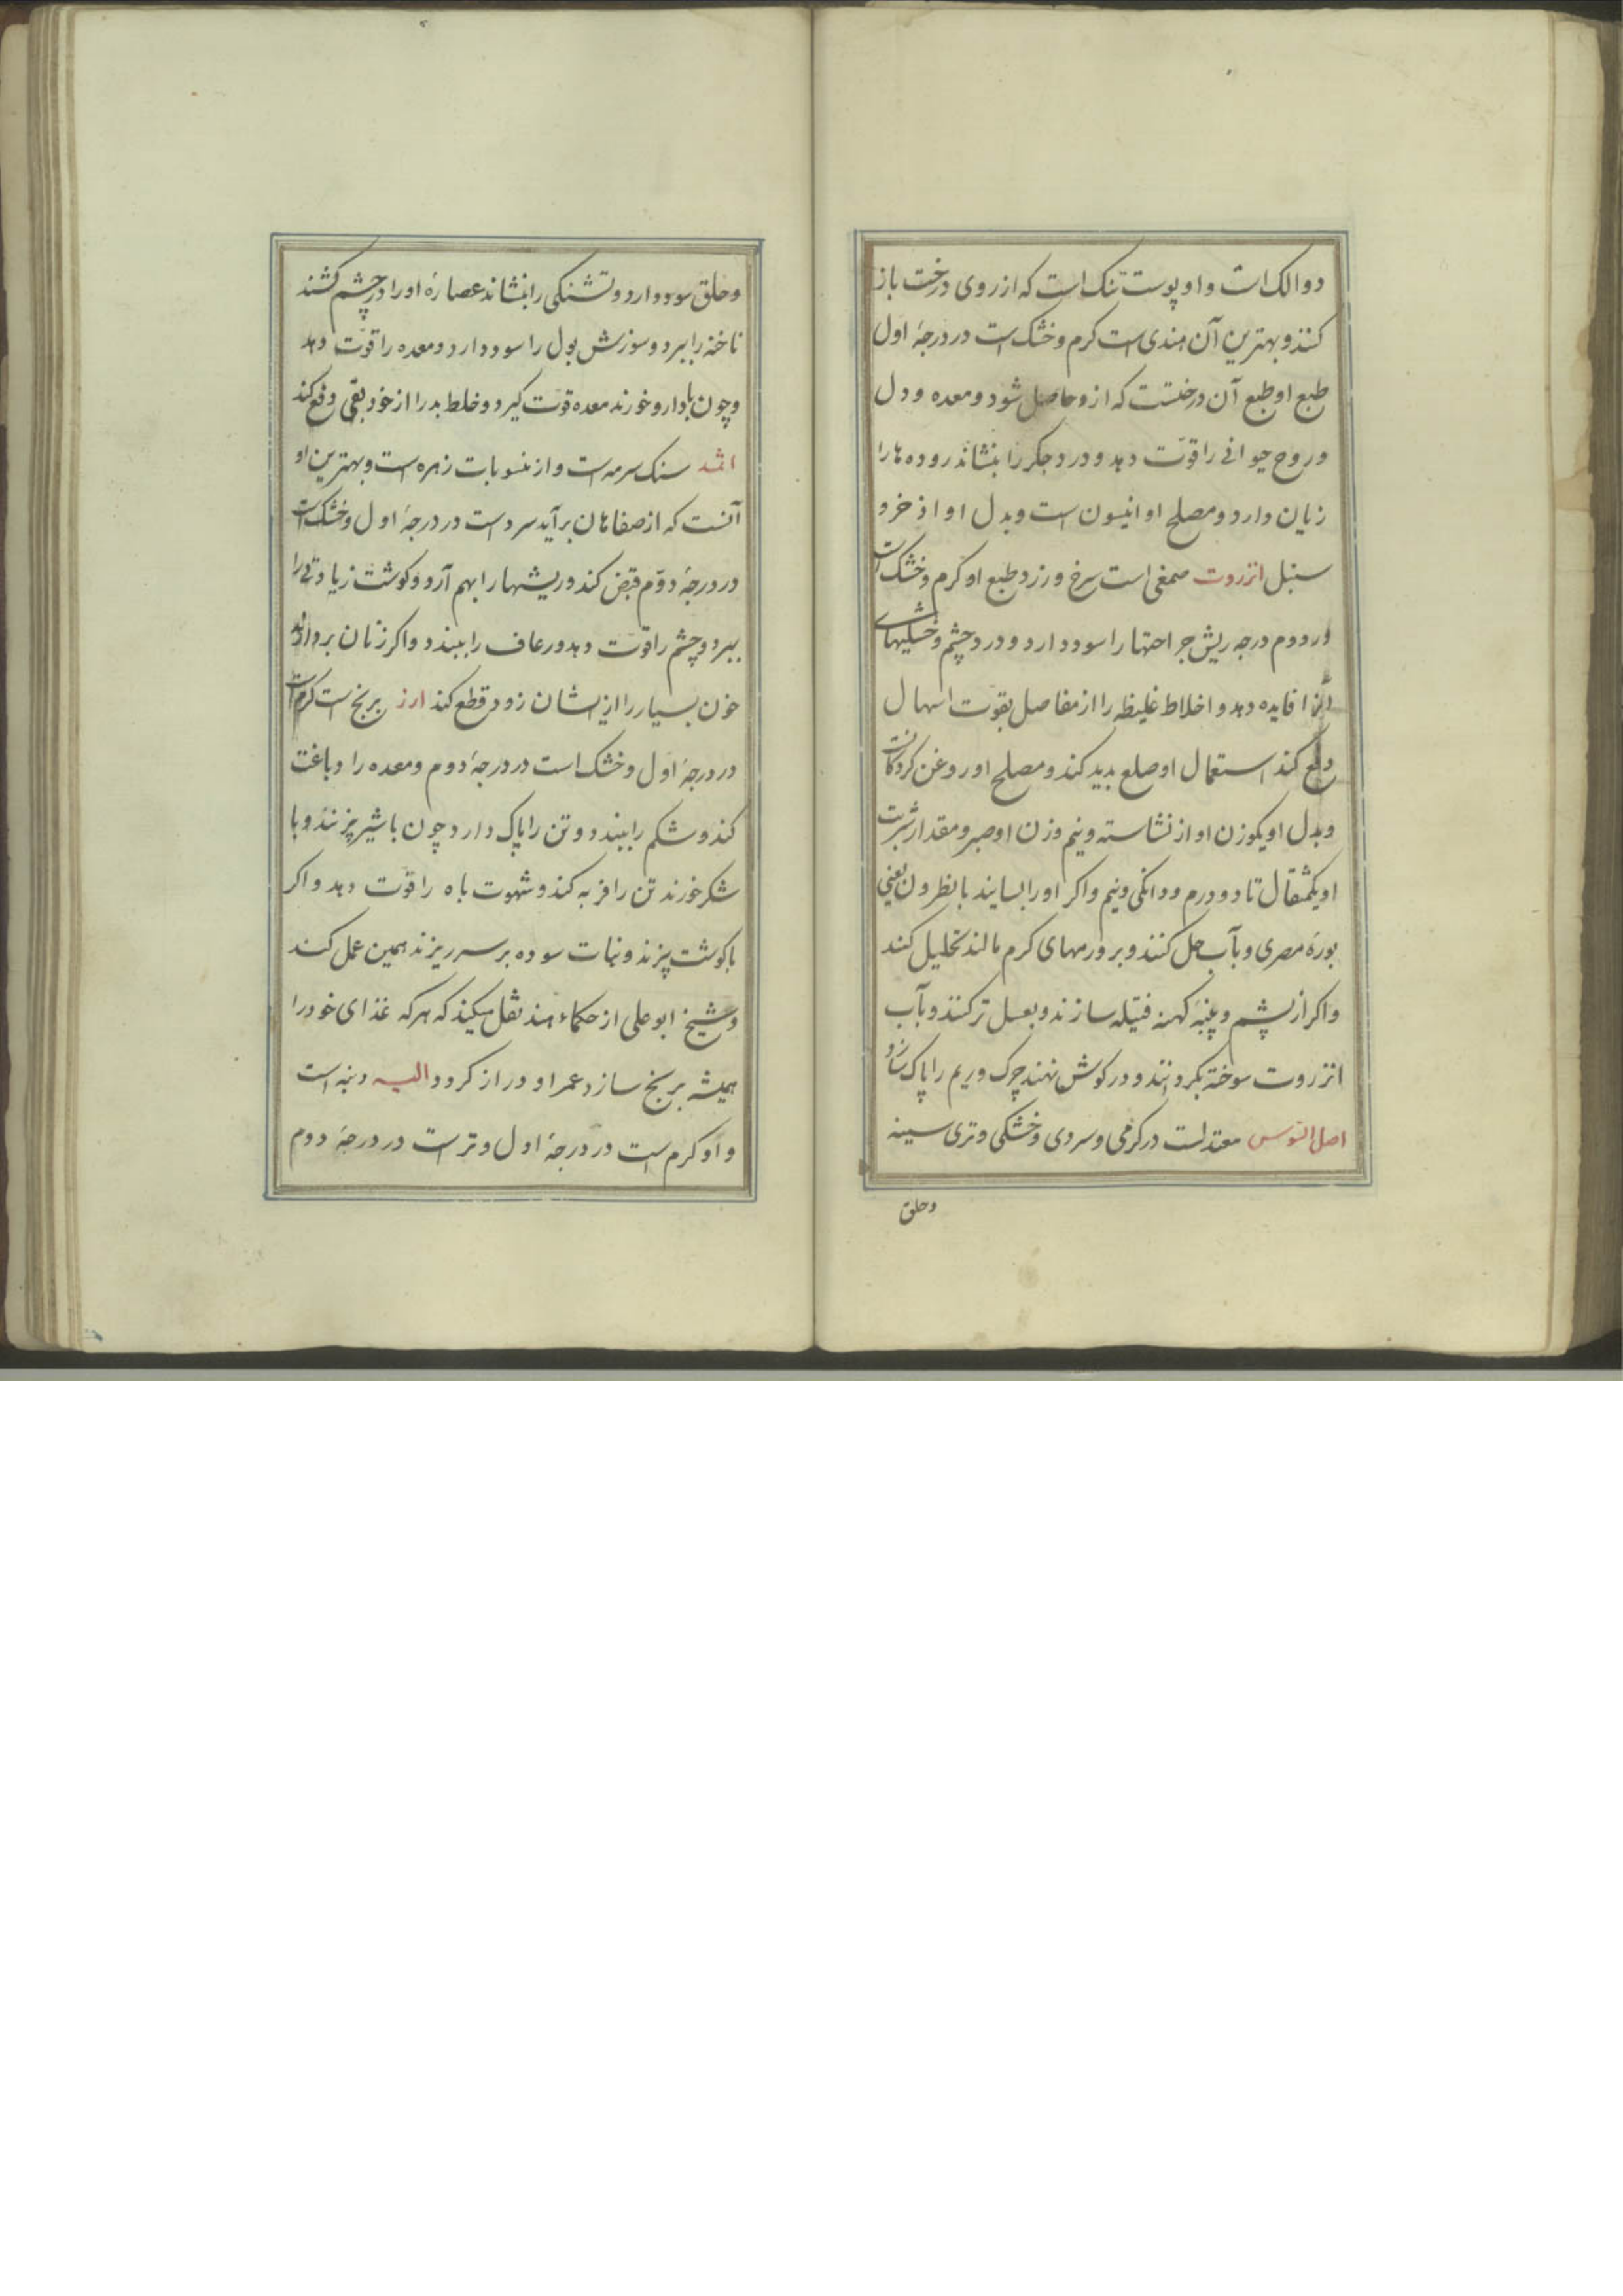 دوالک است و او پوست تنک است که از روی درخت باز
کنند و بهترین آن هندی است کرم و خشک است در درجهٔ اول
طبع او طبع آن درختست که ازو حاصل شود و معده و دل
و روح حیوانی را قوّت دهد و درد جکر را بنشاند روده ها را
زیان دارد و مصلح او انیسون است و بدل او اذخر و
سنبل انزروت صمغی است سرخ و زرد و طبع او کرم و خشک است
در دوم درجه ریش جراحتها را سود دارد و درد چشم و
را فایده دهد و اخلاط غلیظه را از مفاصل بقوّت اسهال
دفع کند استعمال او صلع بدید کند و مصلح او روغن کردکانست
و بدل او یکوزن او از نشاسته و نیم وزن او صبر و مقدار شربت
او یکمثقال تا دو درم و دانکی و نیم و اکر او را بسایند با نظرون یعنی
بورهٔ مصری و بآب حل کنند و بر ورمهای کرم مالند تحلیل کند
و اکر از پشم و پنبهٔ کهنه فتیله سازند و بعسل تر کنند و بآب
انزروت سوخته بکردانند و در کوش نهند چرک و ریم را پاک سازد
اصل السّوس معتدلست در کرمی و سردی و خشکی و تری سینه
وحلق
و حلق سود دارد و تشنکی را بنشاند عصارهٔ او را در چشم کشند
ناخنه را ببرد و سوزش بول را سود دارد و معده را قوّت دهد
و چون با دارو خورند معده قوّت کیرد و خلط بد را از خود بقی دفع کند
اثمد سنک سرمه است و از منسوبات زهره است و بهترین او
آنست که از صفاهان برآید سرد است در درجهٔ اول و خشک است
در درجهٔ دوّم قبض کند و ریشها را بهم آرد و کوشت زیادتی را
ببرد و چشم را قوّت دهد و رعاف را ببندد و اکر زنان بردارند
خون بسیار را از یشان زود قطع کند ارز برنج است کرم است
در درجهٔ اول و خشک است در درجهٔ دوم و معده را دباغت
کند و شکم را ببندد و تن را پاک دارد چون با شیر پزند و با
شکر خورند تن را فربه کند و شهوت باه را قوّت دهد و اکر
با کوشت پزند و نبات سوده بر سر ریزند همین عمل کند
و شیخ ابو علی از حکماء هند نقل میکند که هر که غذای خود را
همیشه برنج سازد عمر او دراز کردد الیه دنبه است
و او کرم است در درجهٔ اول و تر است در درجهٔ دوم